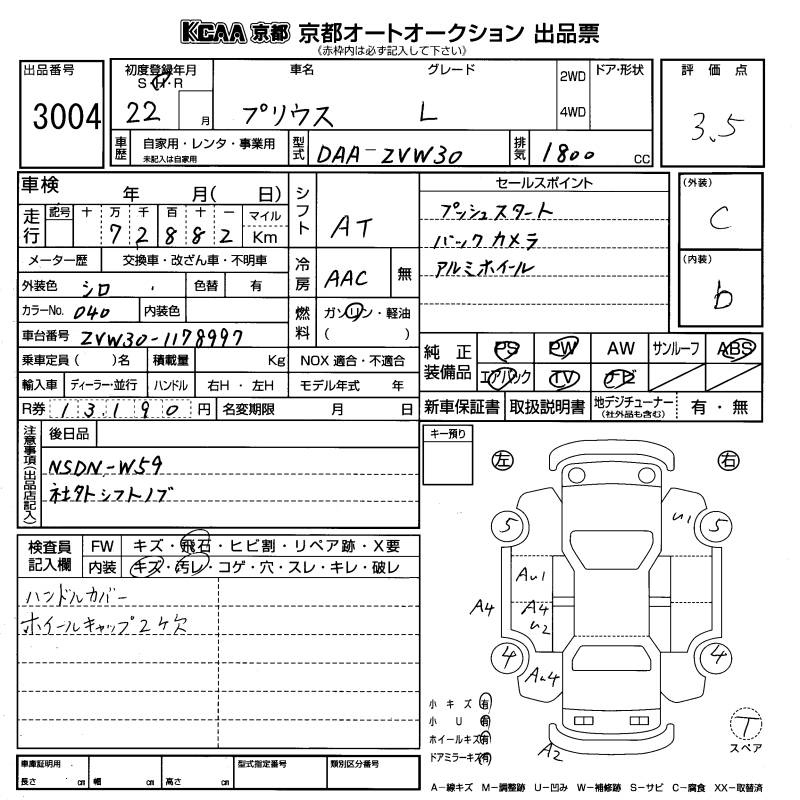 KCAA 京都 京都オートオークション 出品票
(赤枠内は必ず記入して下さい)
出品番号 初度登録年月 車名 グレード 2WD ドア・形状 評価点
S・H・R
3004 22 月 プリウス L 4WD 3.5
車歴 自家用・レンタ・事業用 型式 DAA-ZVW30 排気 1800 cc
未記入は自家用
車検 年 月( 日) シフト AT セールスポイント (外装)
走行 記号 十 万 千 百 十 一 マイル プッシュスタート C
7 2 8 8 2 Km バックカメラ
メーター歴 交換車・改ざん車・不明車 冷房 AAC 無 アルミホイール (内装)
外装色 シロ 色替 有 b
カラーNo. 040 内装色 燃料 ガソリン・軽油
車台番号 ZVW30-1178997 ( )
乗車定員( )名 積載量 Kg NOX 適合・不適合 純正装備品 PS PW AW サンルーフ ABS
輸入車 ディーラー・並行 ハンドル 右H・左H モデル年式 年 エアバック TV ナビ
R券 13190円 名変期限 月 日 新車保証書 取扱説明書 地デジチューナー 有・無
(社外品も含む)
注意事項(出品店記入) 後日品 キー預り
NSDN-W59 左 右
社外シフトノブ
検査員記入欄 FW キズ・飛石・ヒビ割・リペア跡・X要
内装 キズ・汚レ・コゲ・穴・スレ・キレ・破レ
ハンドルカバー
ホイールキャップ2ケ欠
5 U1 5
AU1
A4 A4
U2
4 4
AU4
小キズ 有
小U 有
ホイールキズ 有
ドアミラーキズ 有
A2
T
スペア
車庫証明用 型式指定番号 類別区分番号
長さ cm 幅 cm 高さ cm
A－線キズ M－調整跡 U－凹み W－補修跡 S－サビ C－腐食 XX－取替済